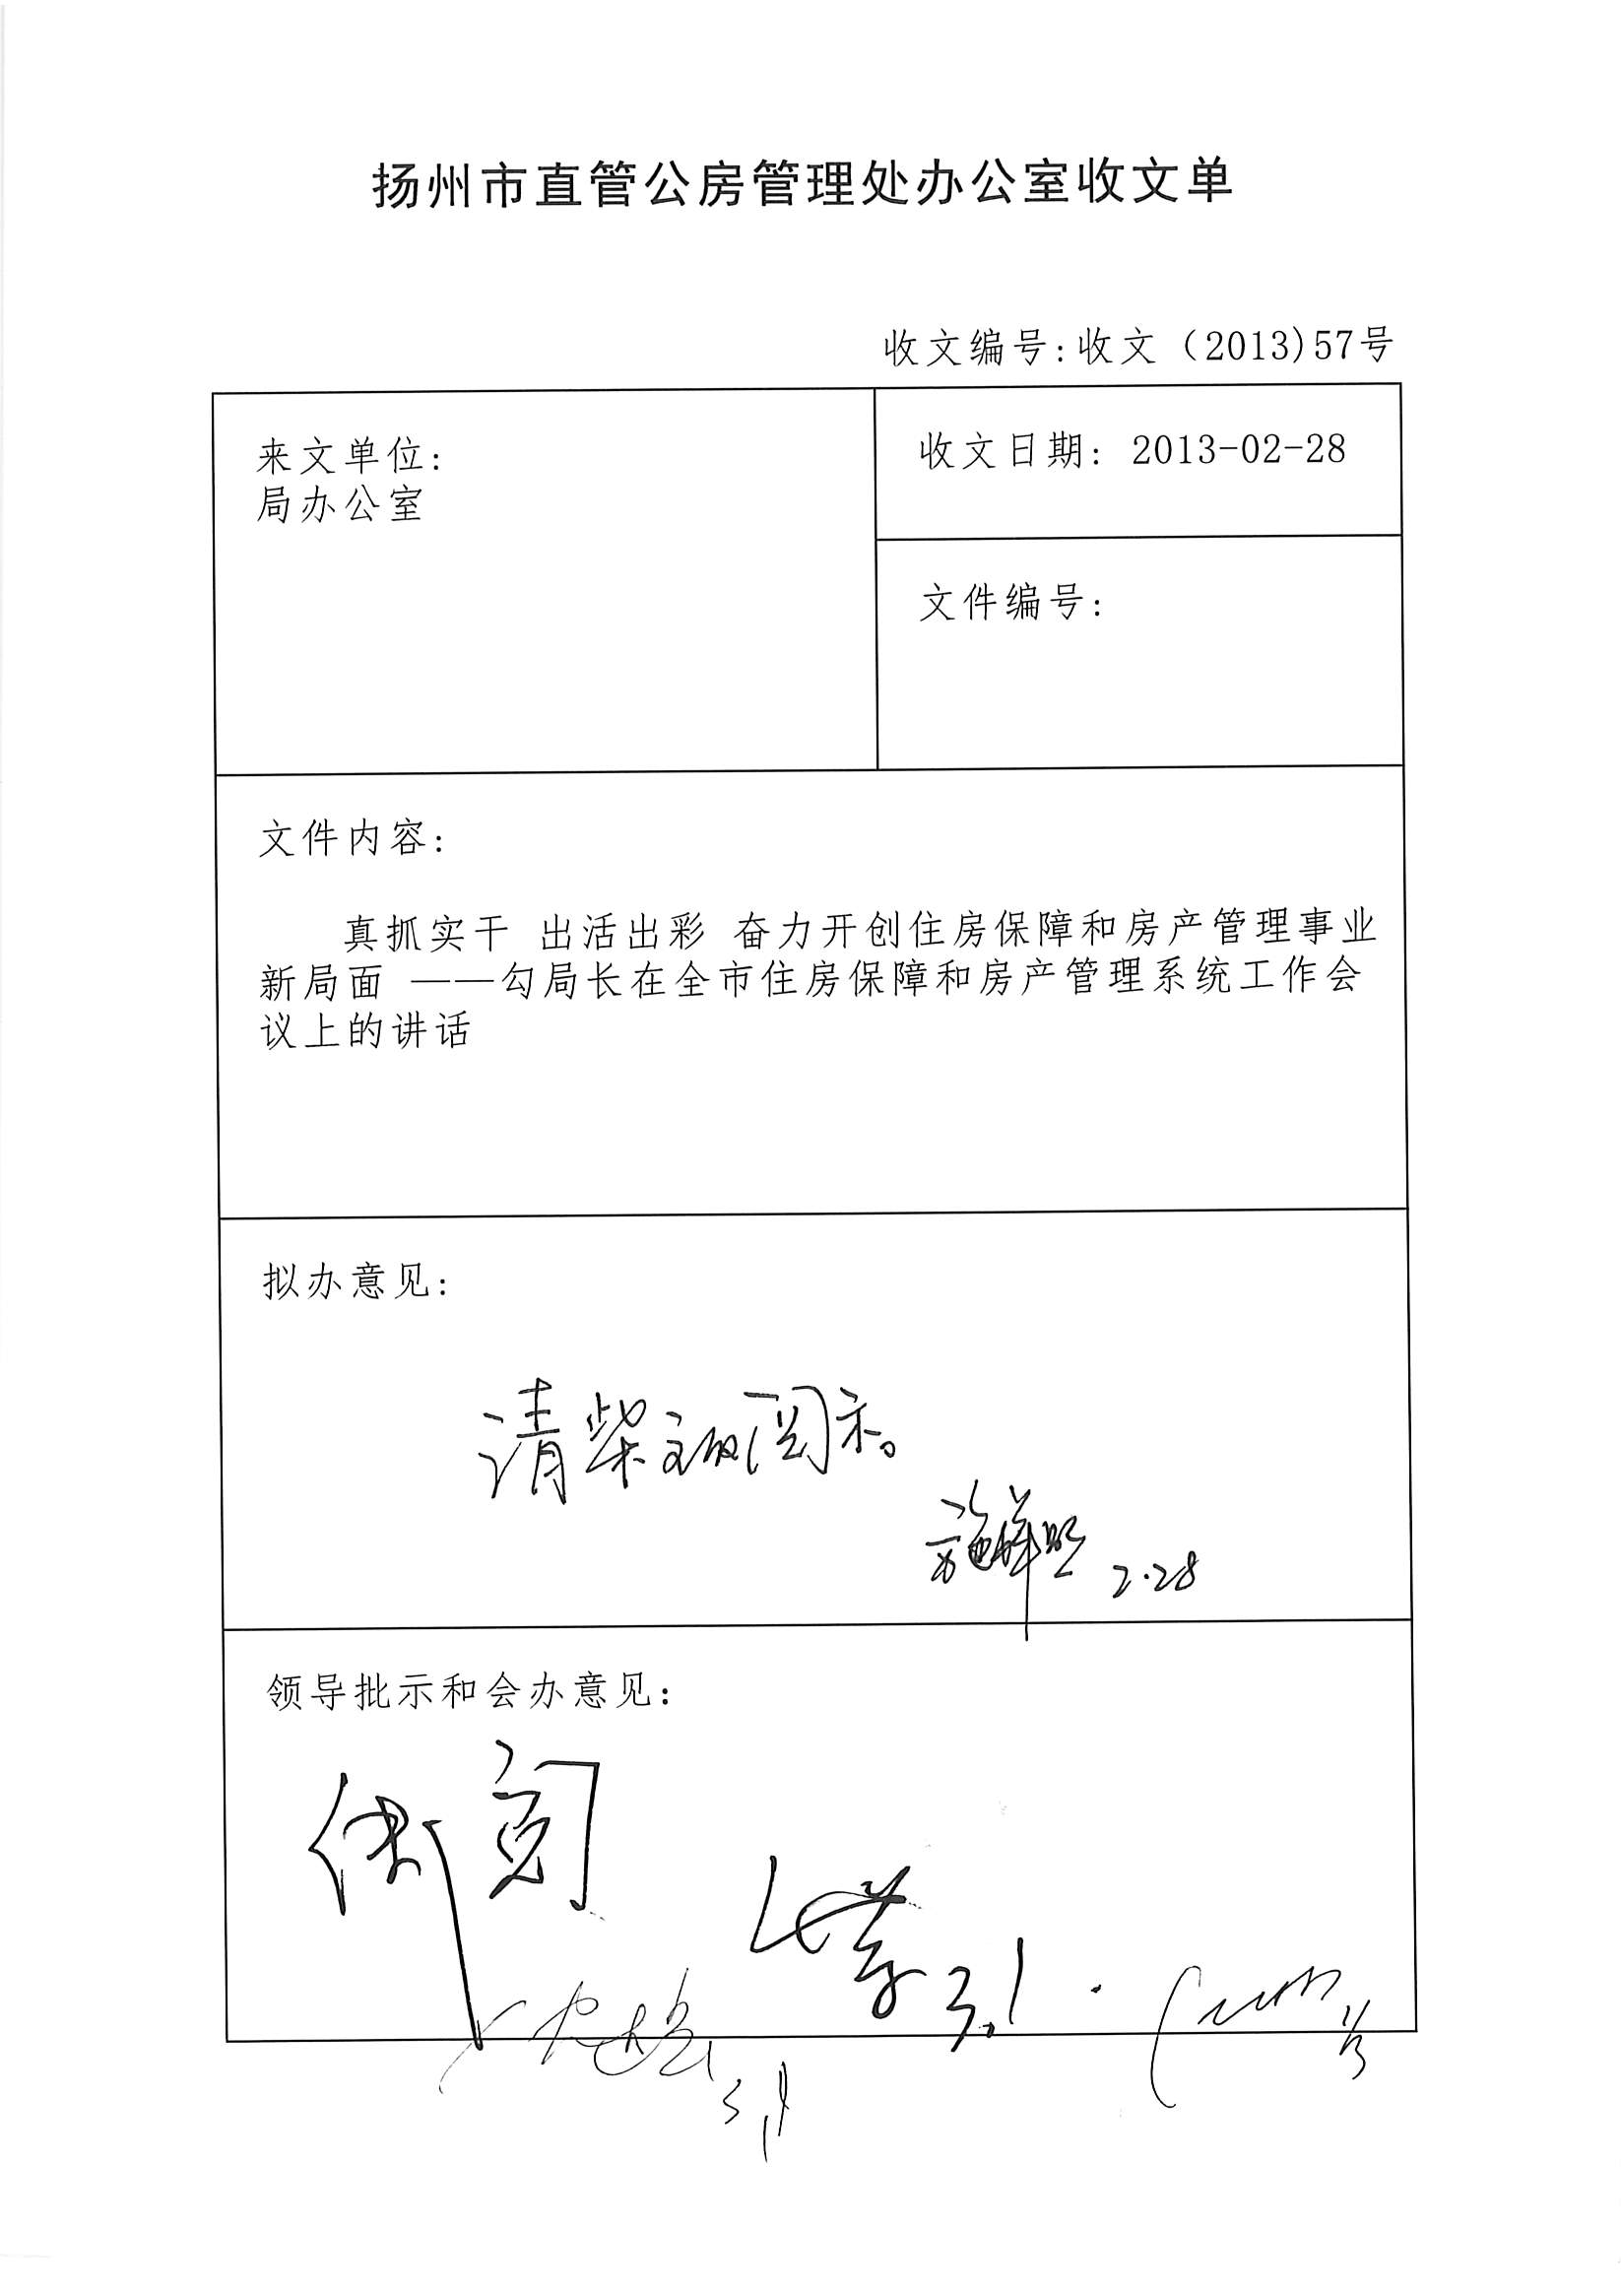 扬州市直管公房管理处办公室收文单
收文编号:收文（2013)57号
来文单位:
局办公室
收文日期: 2013-02-28
文件编号:
文件内容:
真抓实干 出活出彩 奋力开创住房保障和房产管理事业
新局面 ——勾局长在全市住房保障和房产管理系统工作会
议上的讲话
拟办意见:
请柴主任阅示。
2.28
领导批示和会办意见:
传阅
3.1
1/3